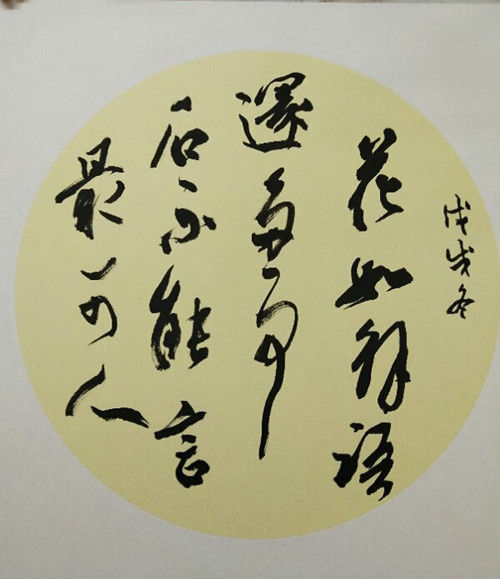 戊戌冬
花如解語
還多事
石不能言
最可人